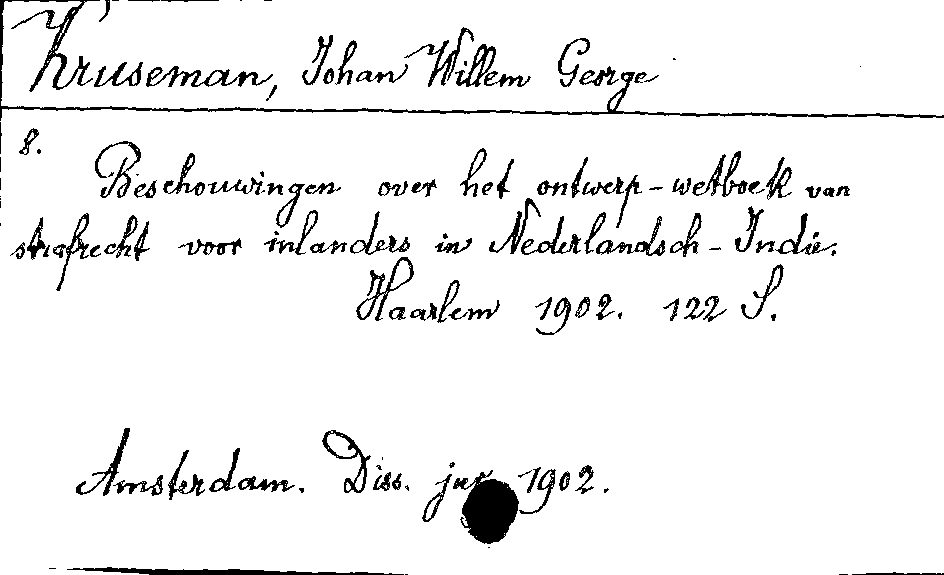 Kruseman, Johan Willem George
8.
Beschouwingen over het ontwerp-wetboek van
strafrecht voor inlanders in Nederlandsch-Indië.
Haarlem 1902. 122 S.
Amsterdam. Diss. jur 1902.